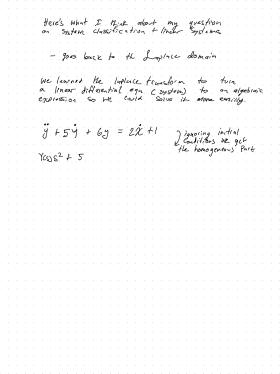 Here's what I think about my question
on system classification + linear systems
- goes back to the Laplace domain
we learned the laplace transform to turn
a linear differential eqn (system) to an algebraic
expression so we could solve it more easily.
ÿ + 5ẏ + 6y = 2ẋ + 1
ignoring initial
conditions we get
the homogeneous part
Y(s) s² + 5